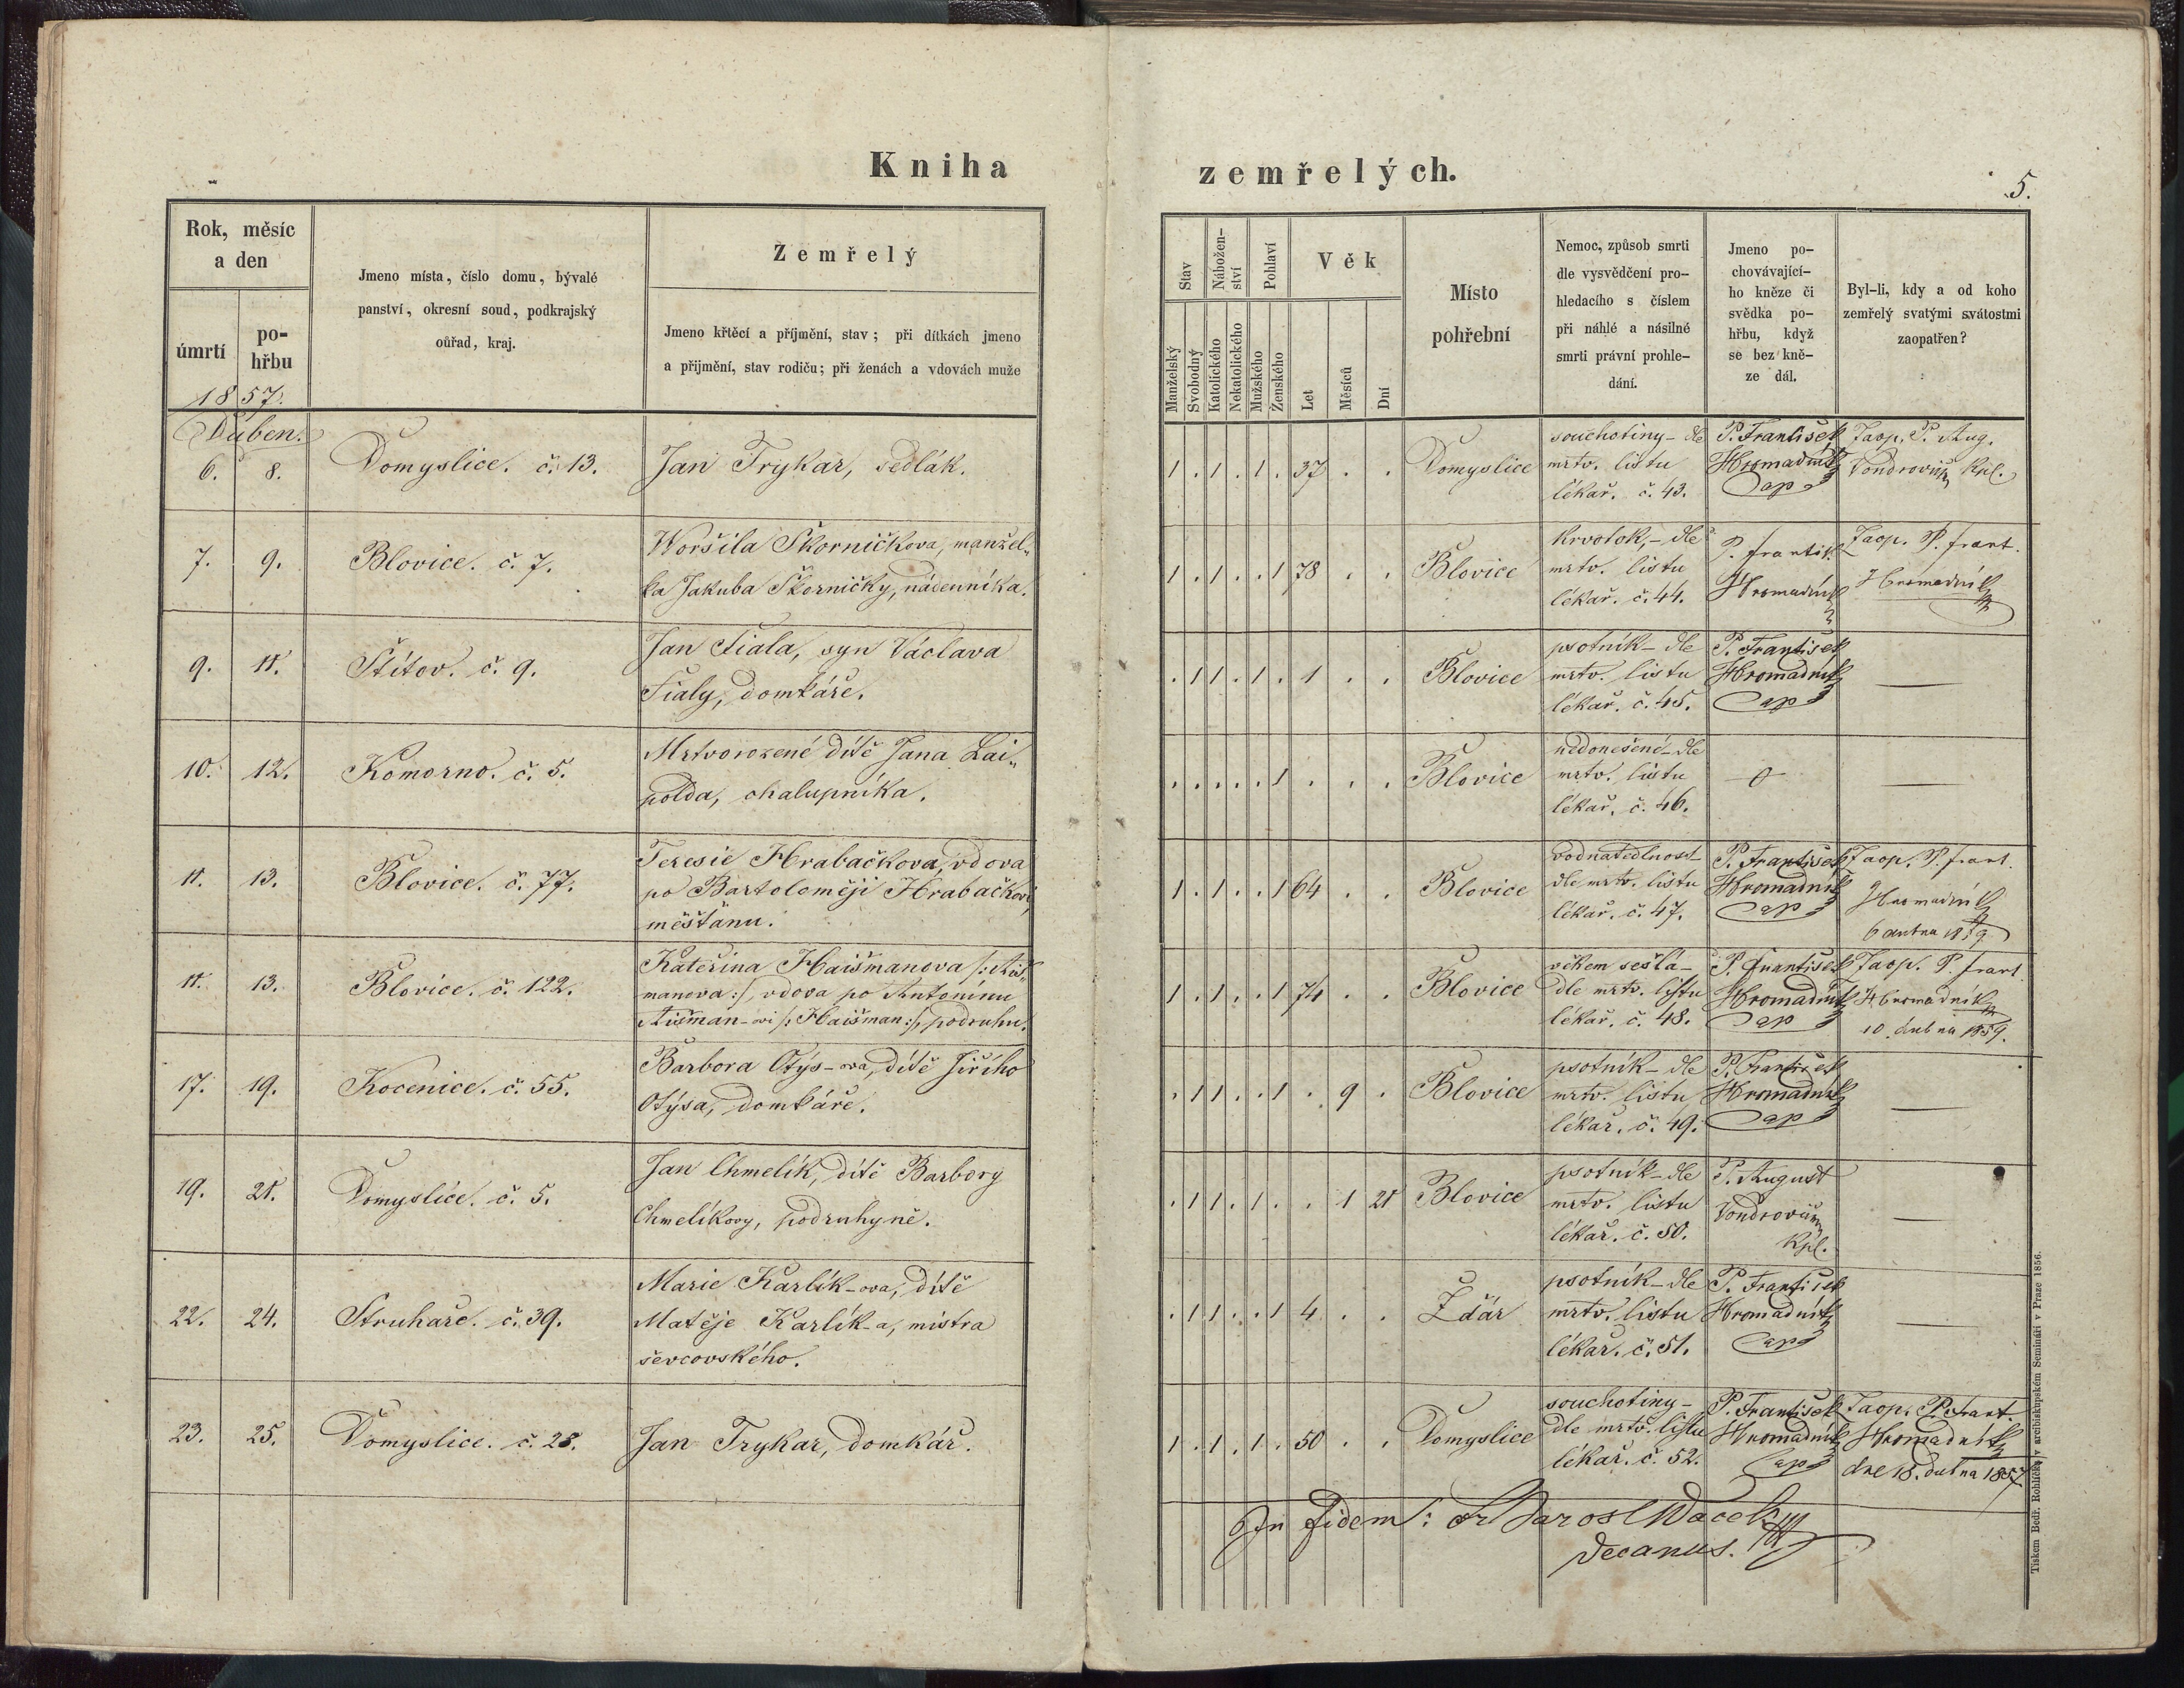 Kniha zemřelých.
5.
Rok, měsíc
a den
úmrtí
po-
hřbu
Jmeno místa, číslo domu, bývalé
panství, okresní soud, podkrajský
oúřad, kraj.
Zemřelý
Jmeno křtěcí a příjmění, stav; při dítkách jmeno
a přijmění, stav rodiču; při ženách a vdovách muže
Stav
Manželský
Svobodný
Nábožen-
ství
Katolického
Nekatolického
Pohlaví
Mužského
Ženského
Věk
Let
Měsíců
Dní
Místo
pohřební
Nemoc, způsob smrti
dle vysvědčení pro-
hledacího s číslem
při náhlé a násilné
smrti právní prohle-
dání.
Jmeno po-
chovávající-
ho kněze či
svědka po-
hřbu, když
se bez kně-
ze dál.
Byl-li, kdy a od koho
zemřelý svatými svátostmi
zaopatřen?
1857.
Duben.
6. 8. Domyslice. č. 13. Jan Trykar, sedlák.
1 . 1 . 1 . 37 . . Domyslice
souchotiny - dle
mrtv. listu
lékař. č. 43.
P. František
Hromadník
Cap
Zaop. P. Aug.
Vondrovič Kpl.
7. 9. Blovice. č. 7.
Woršila Škorničkova, manžel„
ka Jakuba Škorničky, nádenníka.
1 . 1 . . 1 78 . . Blovice
krvotok, - dle
mrtv. listu
lékař. č. 44.
P. Františ.
Hromadník
Zaop. P. Frant.
Hromadník
9. 11. Štítov. č. 9.
Jan Fiala, syn Václava
Fialy, domkáře.
. 1 1 . 1 . 1 . . Blovice
psotník - dle
mrtv. listu
lékař. č. 45.
P. František
Hromadník
Cap
—
10. 12. Komorno. č. 5.
Mrtvorozené dítě Jana Lai„
polda, chalupníka.
. . . . . 1 . . . Blovice
nedonešené - dle
mrtv. listu
lékař. č. 46.
0
—
11. 13. Blovice. č. 77.
Teresie Hrabačkova, vdova
po Bartoloměji Hrabačkovi,
měšťanu.
1 . 1 . . 1 64 . . Blovice
vodnatedlnost -
dle mrtv. listu
lékař. č. 47.
P. František
Hromadník
Cap
Zaop. P. Frant.
Hromadník
6 dubna 1859
11. 13. Blovice. č. 122.
Kateřina Haišmanova /: Aiš„
manova :/, vdova po Antonínu
Aišman-ovi /: Haišman :/, podruhu.
1 . 1 . . 1 74 . . Blovice
věkem sešlá -
dle mrtv. listu
lékař. č. 48.
P. František
Hromadník
Cap
Zaop. P. Frant
Hromadník
10. dubna 1859.
17. 19. Kocenice. č. 55.
Barbora Otýs-ova, dítě Jiřího
Otýsa, domkáře.
. 1 1 . . 1 . 9 . Blovice
psotník - dle
mrtv. listu
lékař. č. 49.
P. František
Hromadník
Cap
—
19. 21. Domyslice. č. 5.
Jan Chmelík, dítě Barbory
Chmelíkovy, podruhyně.
. 1 1 . 1 . . 1 21 Blovice
psotník - dle
mrtv. listu
lékař. č. 50.
P. August
Vondrovič
Kpl.
—
22. 24. Struhaře. č. 39.
Marie Karlík-ova, dítě
Matěje Karlík-a, mistra
ševcovského.
. 1 1 . . 1 4 . . Ždár
psotník - dle
mrtv. listu
lékař. č. 51.
P. František
Hromadník
Cap
—
23. 25. Domyslice. č. 28. Jan Trykar, domkář.
1 . 1 . 1 . 50 . . Domyslice
souchotiny -
dle mrtv. listu
lékař. č. 52.
P. František
Hromadník
Cap
Zaop. P. Frant.
Hromadník
dne 18. dubna 1857
In fidem: Fr Jarosl Wacek
Decanus.
Tiskem Bedř. Rohlíčka v arcibiskupském Semináři v Praze 1856.